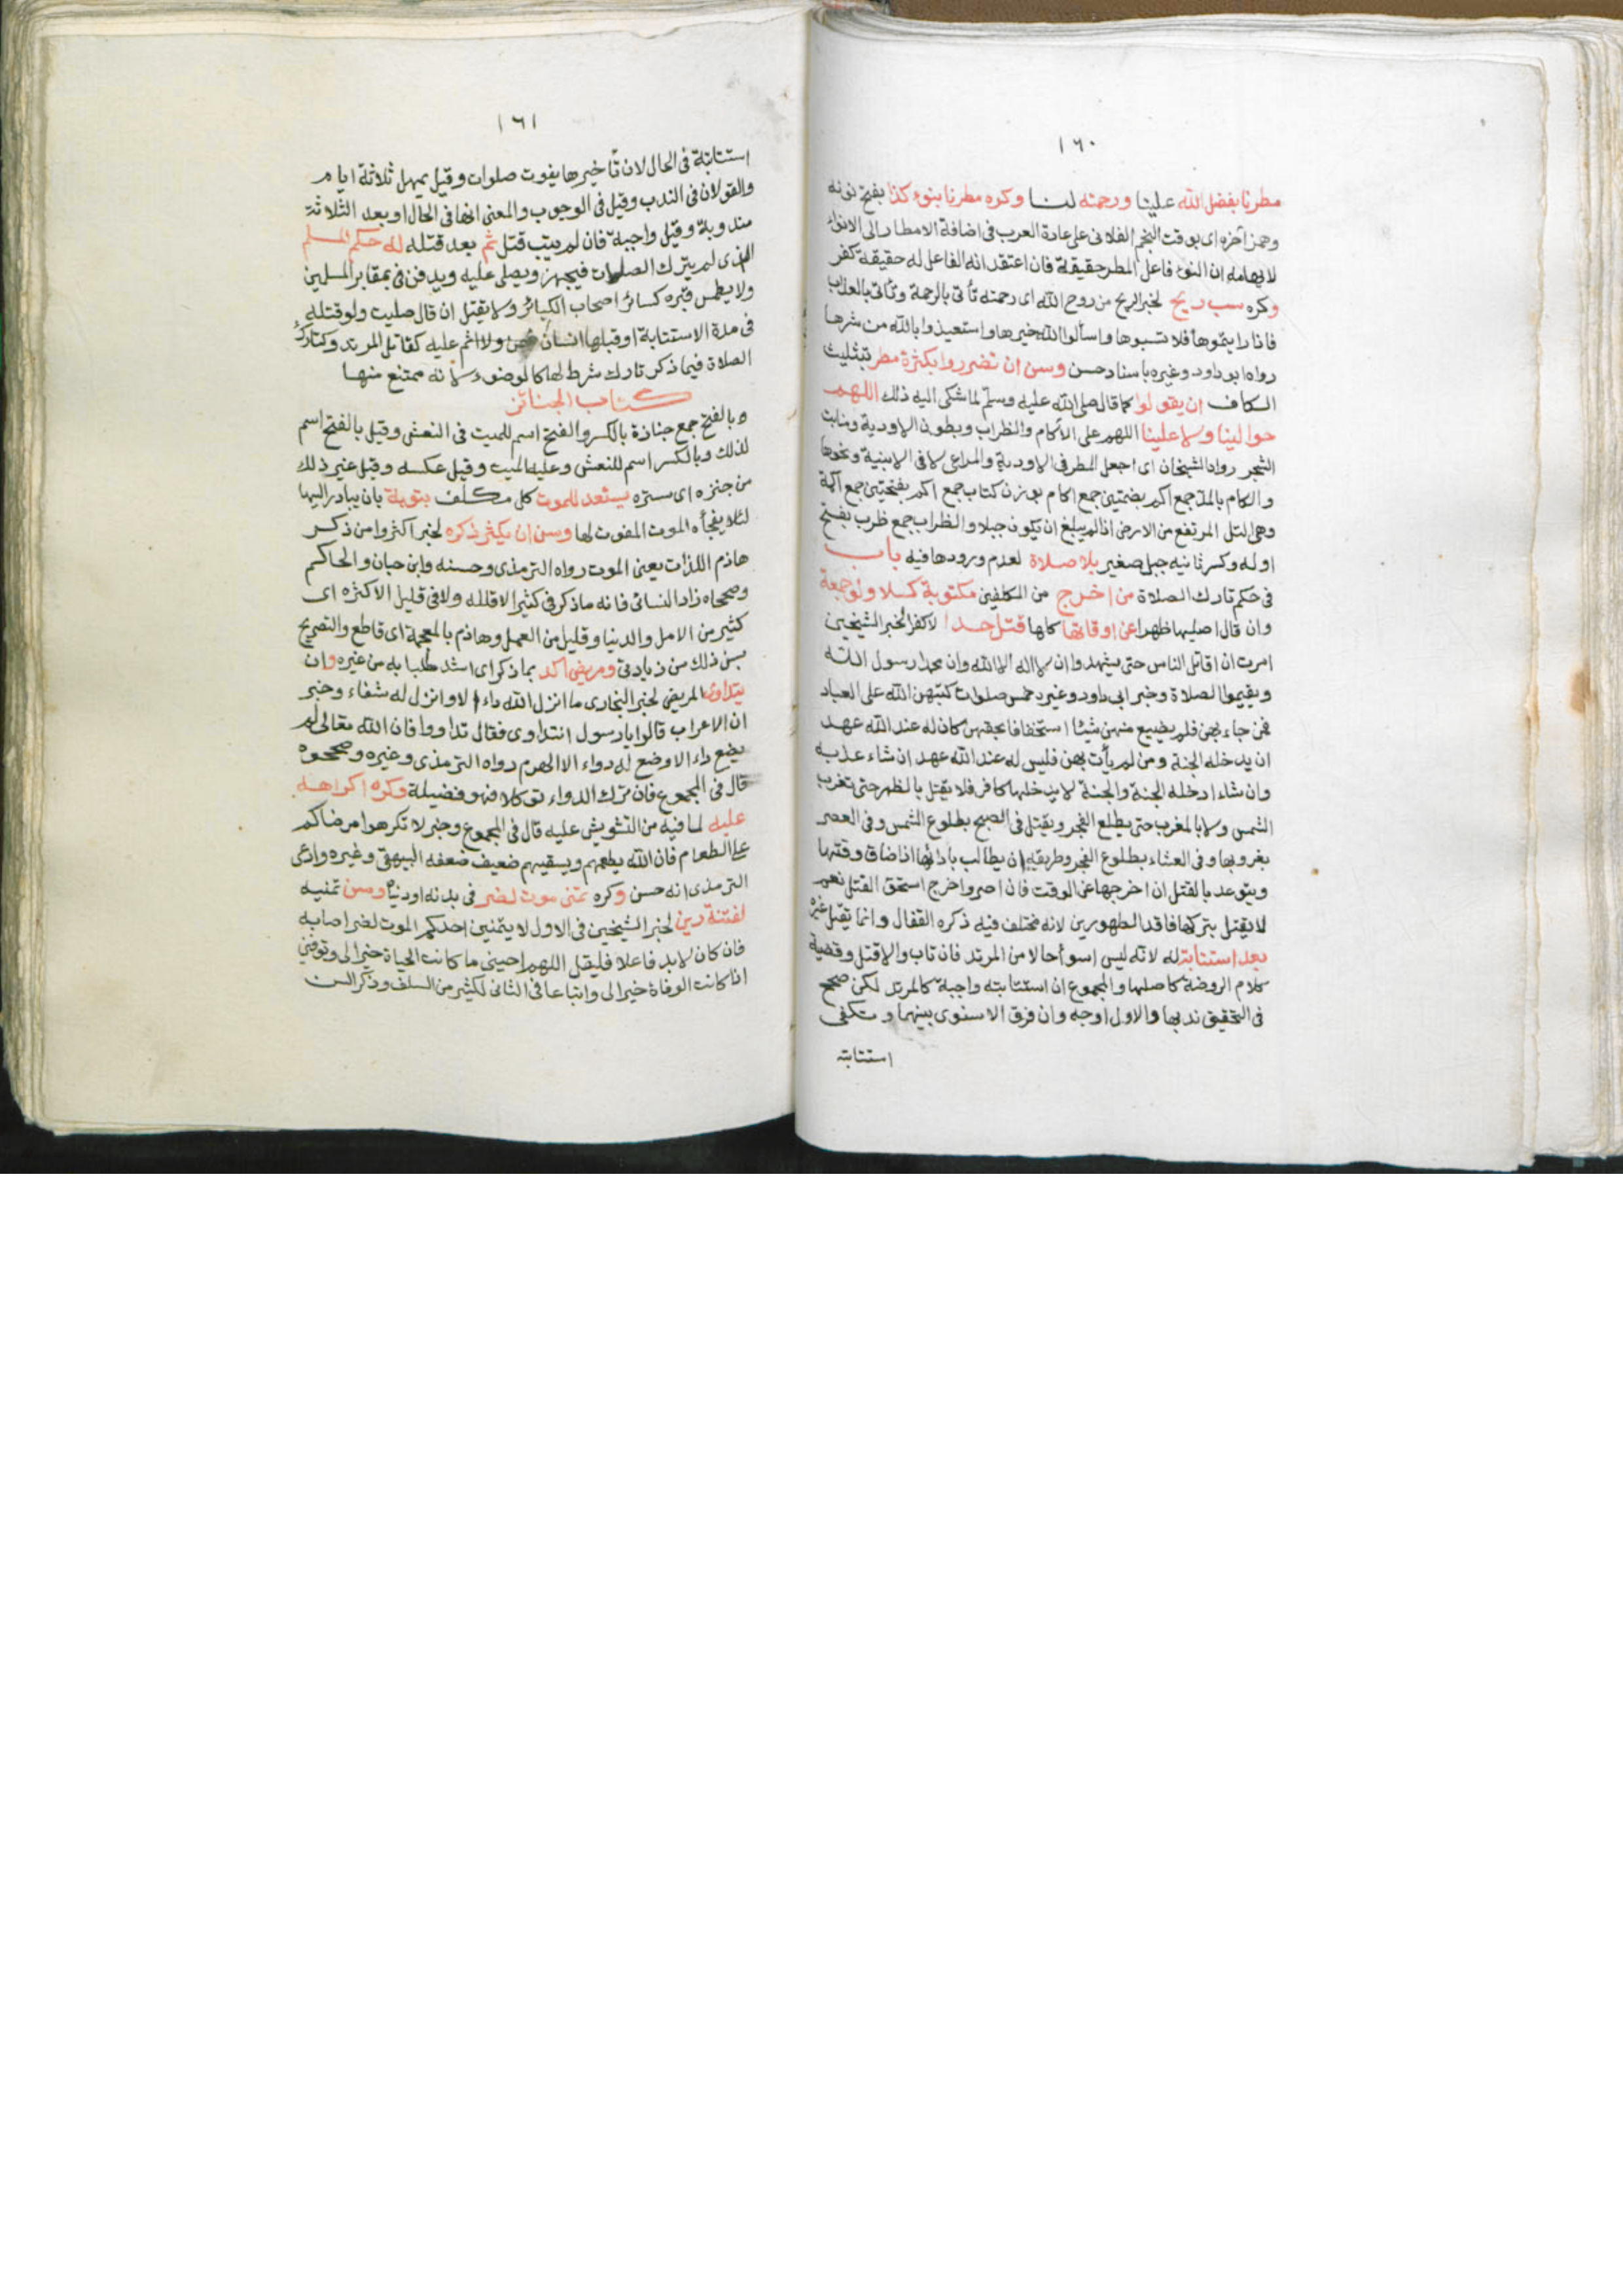 ١٦٠
مطرنا بفضل الله علينا ورحمته لنا وكره مطرنا بنوء كذا بفتح نونه
وهمز آخره اى بوقت النجم الفلانى على عادة العرب فى اضافة الامطار الى الانواء
لايهامه ان النوء فاعل المطر حقيقة فان اعتقد انه الفاعل له حقيقة كفر
وكره سب ريح لخبر الريح من روح الله اى رحمته تأتى بالرحمة وتأتى بالعذاب
فاذا رايتموها فلا تسبوها واسألوا الله خيرها واستعيذوا بالله من شرها
رواه ابو داود وغيره باسناد حسن وسن ان تضرروا بكثرة مطر بتثليث
الكاف ان يقولوا كما قال صلى الله عليه وسلم لما شكى اليه ذلك اللهم
حوالينا ولا علينا اللهم على الآكام والظراب وبطون الاودية ومنابت
الشجر رواه الشيخان اى اجعل المطر فى الاودية والمراعى لا فى الابنية ونحوها
والآكام بالمد جمع اكم بضمتين جمع اكام بوزن كتاب جمع اكم بفتحتين جمع اكمة
وهى التل المرتفع من الارض اذا لم يبلغ ان يكون جبلا والظراب جمع ظرب بفتح
اوله وكسر ثانيه جبل صغير بلا صلاة لعدم ورودها فيه باب
فى حكم تارك الصلاة من اخرج من المكلفين مكتوبة كسلا ولو جمعة
وان قال اصليها ظهرا عن اوقاتها كلها قتل حدا لا كفرا لخبر الشيخين
امرت ان اقاتل الناس حتى يشهدوا ان لا اله الا الله وان محمدا رسول الله
ويقيموا الصلاة وخبر ابى داود وغيره خمس صلوات كتبهن الله على العباد
فمن جاء بهن فلم يضيع منهن شيئا استخفافا بحقهن كان له عند الله عهد
ان يدخله الجنة ومن لم يأت بهن فليس له عند الله عهد ان شاء عذبه
وان شاء ادخله الجنة والجنة لا يدخلها كافر فلا يقتل بالظهر حتى تغرب
الشمس ولا بالمغرب حتى يطلع الفجر ويقتل فى الصبح بطلوع الشمس وفى العصر
بغروبها وفى العشاء بطلوع الفجر وطريقه ان يطالب بادائها اذا ضاق وقتها
ويتوعد بالقتل ان اخرجها عن الوقت فان اصر واخرج استحق القتل نعم
لا يقتل بتركها فاقد الطهورين لانه مختلف فيه ذكره القفال وانما يقتل غيره
بعد استتابة له لانه ليس اسوأ حالا من المرتد فان تاب والا قتل وقضية
كلام الروضة كاصلها والمجموع ان استتابته واجبة كالمرتد لكن صحح
فى التحقيق ندبها والاول اوجه وان فرق الاسنوى بينهما وتكفى
استتابته
١٦١
استتابة فى الحال لان تأخيرها يفوت صلوات وقيل يمهل ثلاثة ايام
والقولان فى الندب وقيل فى الوجوب والمعنى انها فى الحال او بعد الثلاثة
مندوبة وقيل واجبة فان لم يتب قتل ثم بعد قتله له حكم المسلم
الذى لم يترك الصلوات فيجهز ويصلى عليه ويدفن فى بمقابر المسلمين
ولا يطمس قبره كسائر اصحاب الكبائر ولا يقتل ان قال صليت ولو قتله
فى مدة الاستتابة او قبلها انسان ولا اثم عليه كقاتل المرتد وكتارك
الصلاة فيما ذكر تارك شرط لها كالوضوء لانه ممتنع منها
كتاب الجنائز
بالفتح جمع جنازة بالكسر والفتح اسم للميت فى النعش وقيل بالفتح اسم
لذلك وبالكسر اسم للنعش وعليه الميت وقيل عكسه وقيل غير ذلك
من جنزه اى ستره يستعد للموت كل مكلف بتوبة بان يبادر اليها
لئلا يفجأه الموت المفوت لها وسن ان يكثر ذكره لخبر اكثروا من ذكر
هاذم اللذات يعنى الموت رواه الترمذى وحسنه وابن حبان والحاكم
وصححاه زاد النسائى فانه ما ذكر فى كثير الا قلله ولا فى قليل الا كثره اى
كثير من الامل والدنيا وقليل من العمل وهاذم بالمعجمة اى قاطع والتصريح
بسن ذلك من زيادتى ومريض اكد بما ذكر اى اشد طلبا به من غيره وان
يتداوى المريض لخبر البخارى ما انزل الله داء الا وانزل له شفاء وخبر
ان الاعراب قالوا يا رسول انتداوى فقال تداووا فان الله تعالى لم
يضع داء الا وضع له دواء الا الهرم رواه الترمذى وغيره وصححوه
قال فى المجموع فان ترك الدواء توكلا فهو فضيلة وكره اكراهه
عليه لما فيه من التشويش عليه قال فى المجموع وخبر لا تكرهوا مرضاكم
على الطعام فان الله يطعمهم ويسقيهم ضعيف ضعفه البيهقى وغيره وادعى
الترمذى انه حسن وكره تمنى موت لضر فى بدنه او دنياه وسن تمنيه
لفتنة دين لخبر الشيخين فى الاول لا يتمنين احدكم الموت لضر اصابه
فان كان لا بد فاعلا فليقل اللهم احينى ما كانت الحياة خيرا لى وتوفنى
اذا كانت الوفاة خيرا لى واتباعا فى الثانى لكثير من السلف وذكر السن